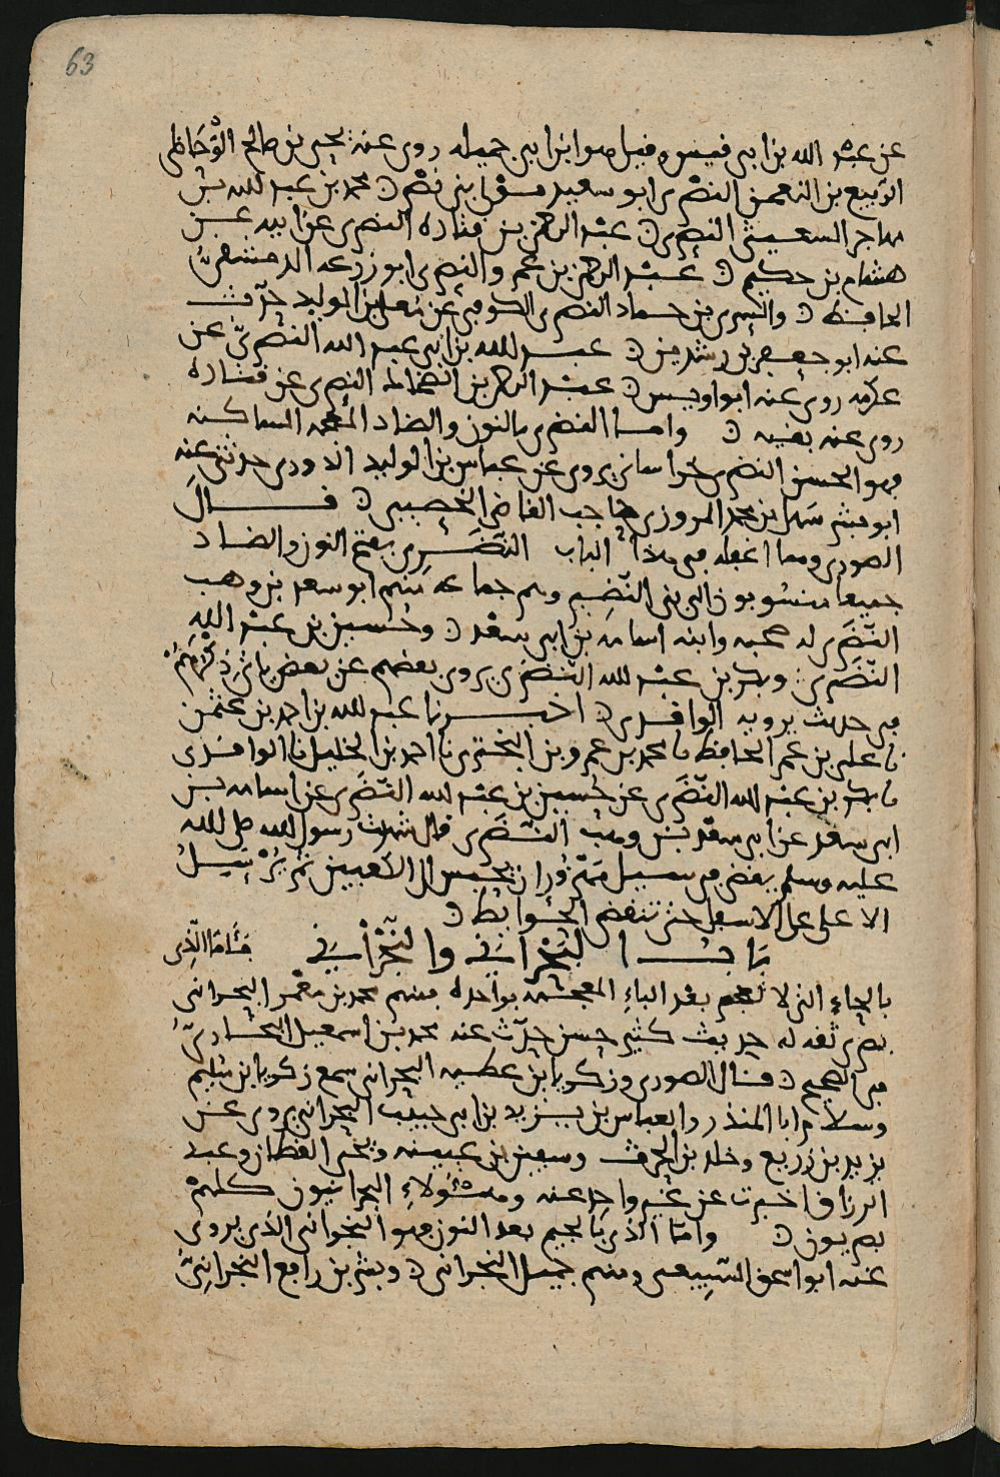 63
عن عبد الله بن ابي قيس وقيل هو ابن ابي جميله روى عنه يحيى بن صالح الوحاظي
الربيع بن النعمن النصري ابو سعيد مولى بني نصر محمد بن عبد الله بن
مهاجر الشعيثي النصري عبد الرحمن بن قتاده النصري عن ابيه عن
هشام بن حكيم عبد الرحمن بن عمرو النصري ابو زرعه الدمشقي
الحافظ والسري بن حماد النصري الكوفي عن يعلى بن الوليد حدث
عنه ابو جعفر بن رشدين عبد الله بن ابي عبد الله النصري عن
روى عنه ابو اويس عبد الرحمن بن الضحاك النصري عن قتاده
روى عنه بقيه واما النضري بالنون والضاد المعجمه الساكنه
فهو الحسن النضري خراساني يروي عن عباس بن الوليد الاودي حدثني عنه
ابو مبشر سهل بن محمد المروزي حاجب القاضي الخصيبي قال
الصوري ومما اغفله في هذا الباب النَّضَرِي بفتح النون والضاد
جميعا منسوبون الى بني النضير وهم جماعه منهم ابو سعد بن وهب
النَّضَري له صحبه وابنه اسامه بن ابي سعد وحسين بن عبد الله
النَّضَري وبكر بن عبد الله النضري يروي بعضهم عن بعض
في حديث يرويه الواقدي اخبرنا عبد الله بن احمد بن عثمن
نا علي بن عمر الحافظ نا محمد بن عمرو بن البختري نا احمد بن الخليل نا الواقدي
نا بكر بن عبد الله النضري عن حسين بن عبد الله النضري عن اسامه بن
ابي سعد عن ابي سعد بن وهب النضري قال شهدت رسول الله صلى الله
عليه وسلم يقضي في سيل مهزور ان يحبس الى الكعبين ثم يرسل
الاعلى على الاسفل حتى تنقضي الحوايط
باب البحراني والنجراني فاما الذي
بالحاء التي لا تعجم بعد الباء المعجمة بواحده فمنهم محمد بن معمر البحراني
بصري ثقه له حديث كثير حسن حدث عنه محمد بن اسمعيل البخاري
في الصحيح قال الصوري وزكريا بن عطيه البحراني سمع زكريا بن سليم
وسلام ابا المنذر والعباس بن يزيد بن ابي حبيب البحراني يروي عن
يزيد بن زريع وخلد بن الحرث وسفين بن عيينه ويحيى القطان وعبد
الرزاق اخبرت عن غير واحد عنه وهؤلاء البحرانيون كلهم
بصريون واما الذي بالجيم بعد النون فهو النجراني الذي يروي
عنه ابو اسحق السبيعي ومنهم جميل النجراني وبشر بن رافع النجراني